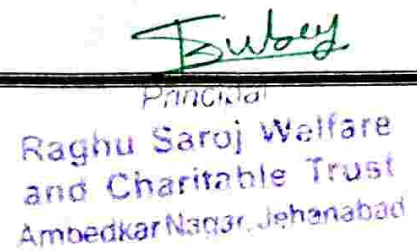 Principal
Raghu Saroj Welfare
and Charitable Trust
Ambedkar Nagar, Jehanabad